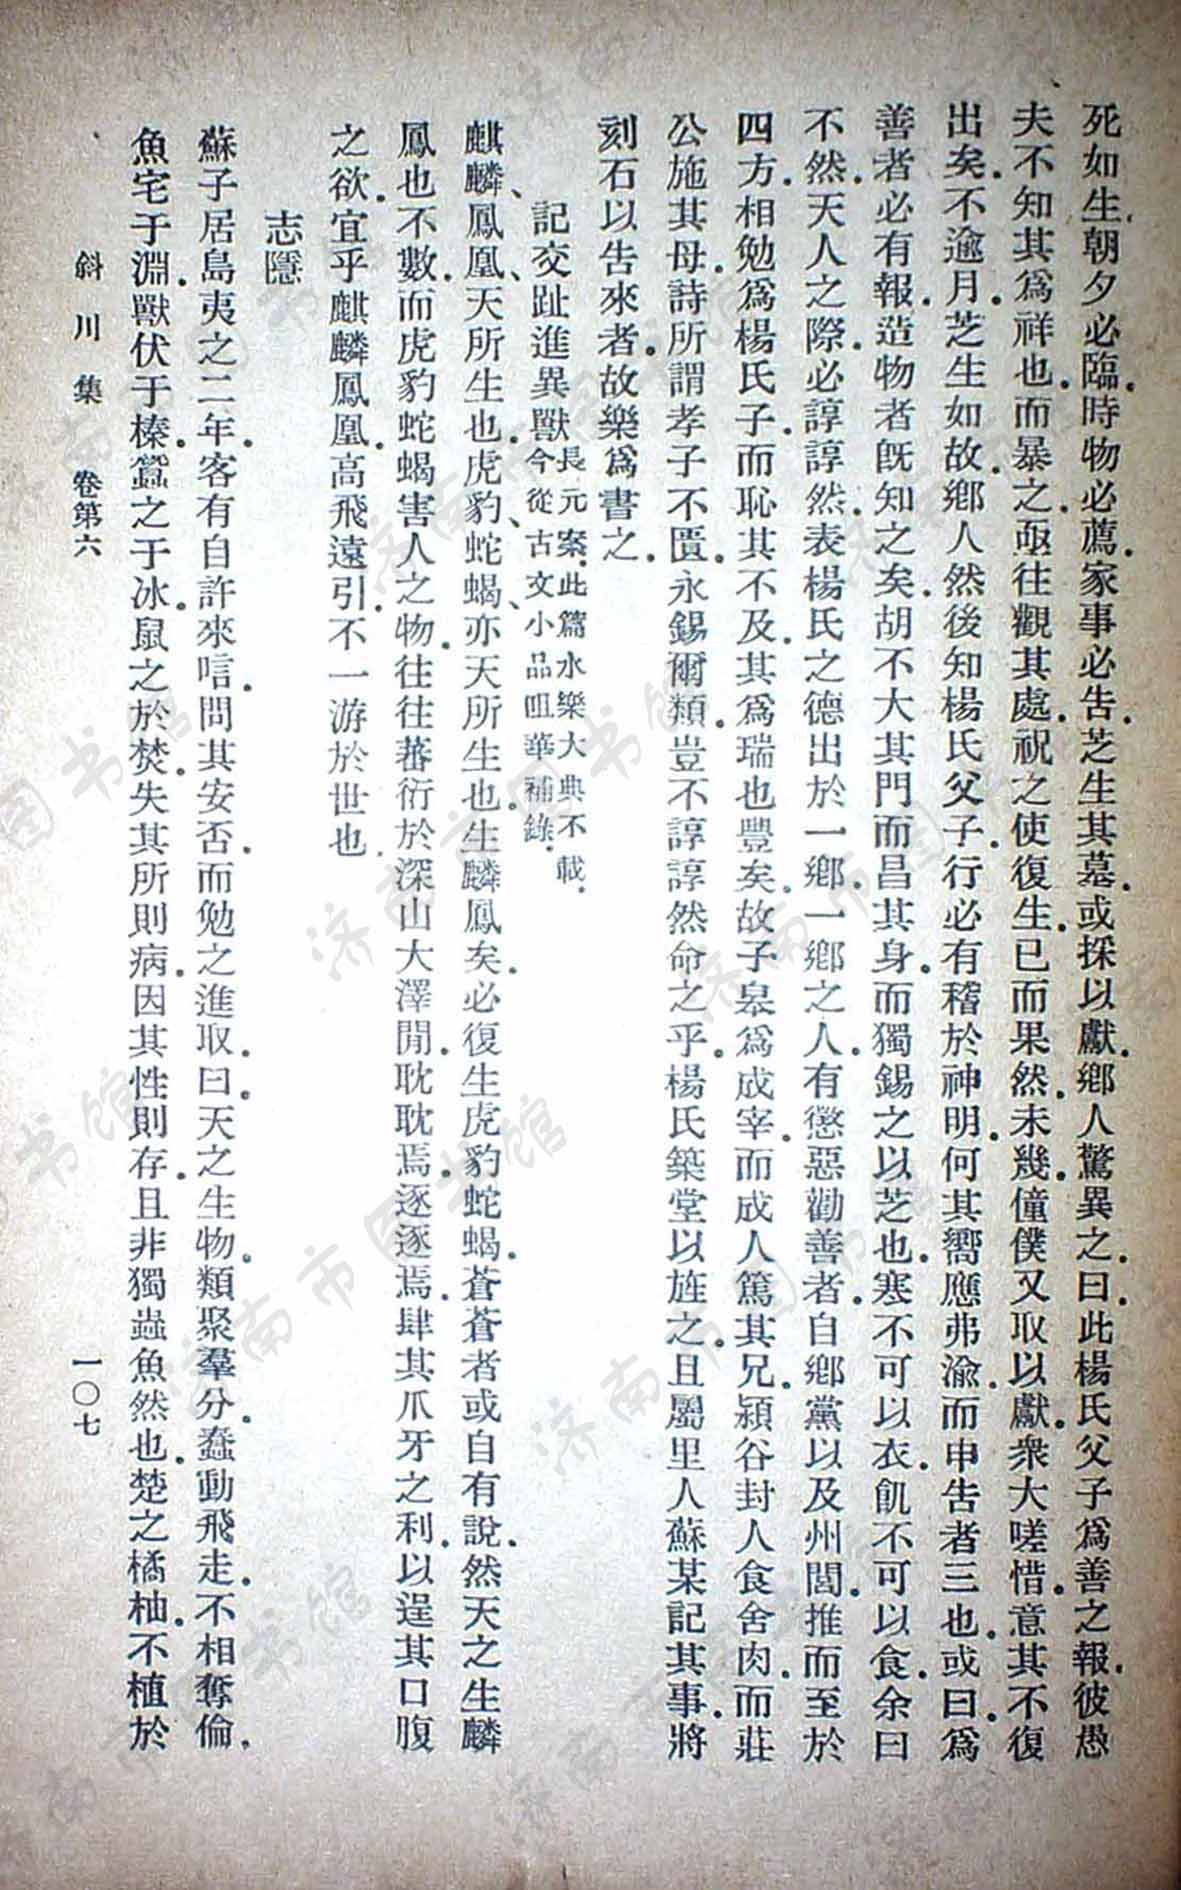 死如生.朝夕必臨.時物必薦.家事必告.芝生其墓.或採以獻.鄉人驚異之.曰.此楊氏父子爲善之報.彼愚
夫不知其爲祥也.而暴之.亟往觀其處.祝之使復生.已而果然.未幾.僮僕又取以獻.衆大嗟惜.意其不復
出矣.不逾月.芝生如故.鄉人然後知楊氏父子.行必有稽於神明.何其嚮應弗渝.而申告者三也.或曰.爲
善者必有報.造物者既知之矣.胡不大其門而昌其身.而獨錫之以芝也.寒不可以衣.飢不可以食.余曰
不然.天人之際.必諄諄然.表楊氏之德出於一鄉.一鄉之人.有懲惡勸善者.自鄉黨以及州閭.推而至於
四方.相勉爲楊氏子.而恥其不及.其爲瑞也豐矣.故子皋爲成宰.而成人篤其兄.潁谷封人食舍肉.而莊
公施其母.詩所謂孝子不匱.永錫爾類.豈不諄諄然命之乎.楊氏築堂以旌之.且屬里人蘇某記其事.將
刻石以告來者.故樂爲書之.
記交趾進異獸 長元案.此篇永樂大典不載.
今從古文小品咀華補錄.
麒麟、鳳凰、天所生也.虎豹、蛇蝎、亦天所生也.生麟鳳矣.必復生虎豹蛇蝎.蒼蒼者或自有說.然天之生麟
鳳也不數.而虎豹蛇蝎害人之物.往往蕃衍於深山大澤閒.耽耽焉.逐逐焉.肆其爪牙之利.以逞其口腹
之欲.宜乎麒麟鳳凰.高飛遠引.不一游於世也.
志隱
蘇子居島夷之二年.客有自許來唁.問其安否.而勉之進取.曰.天之生物.類聚羣分.蠢動飛走.不相奪倫.
魚宅于淵.獸伏于榛.蠶之于冰.鼠之於焚.失其所則病.因其性則存.且非獨蟲魚然也.楚之橘柚.不植於
斜川集 卷第六 一〇七
济南市图书馆